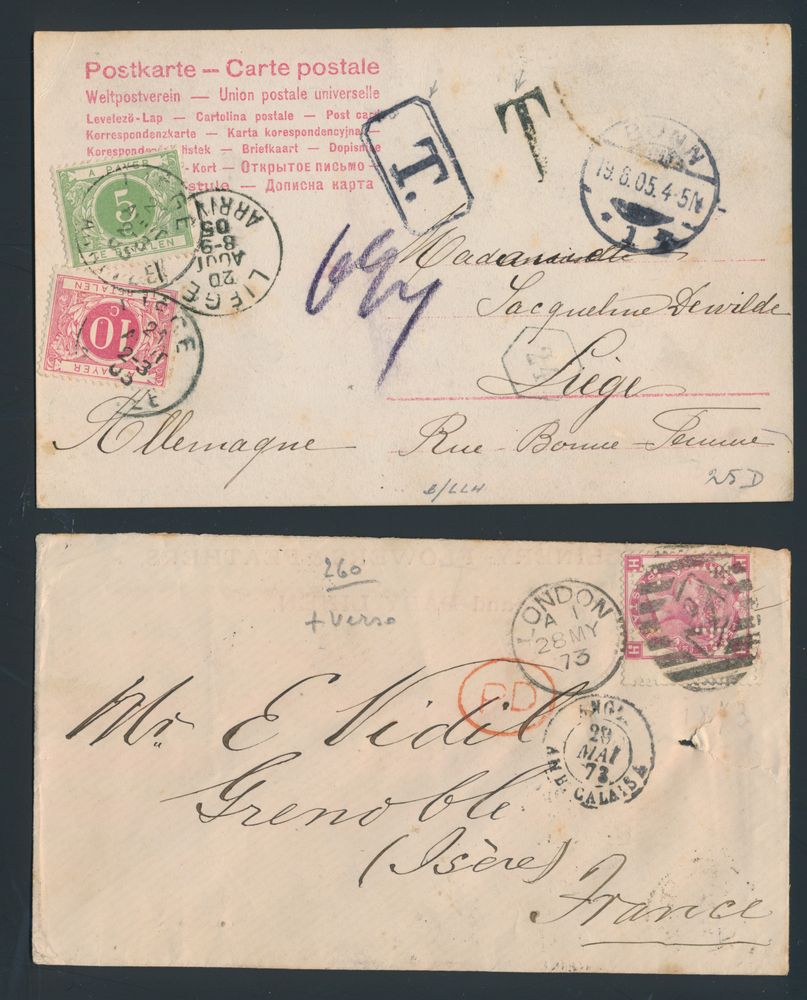 Postkarte — Carte postale
Weltpostverein — Union postale universelle
Levelező-Lap — Cartolina postale — Post car
Korrespondenzkarte — Karta korespondencyjna
listek — Briefkaart — Dopis
Kort — Открытое письмо —
Дописна карта
T.
T
BONN
19.8.05.4-5N
* 1
A PAYER
5
TE BETALEN
LIEGE
ARRIV
8-9
20
AOUT
05
LIEGE
10
BETALEN
A PAYER
Jacqueline Dewilde
Liège
Allemagne
Rue Bonne-Femme
25 D
260
+ verso
LONDON
A 1
28 MY
73
PD
H
H
H
ANGL.
29
MAI
73
AMB. CALAIS
Mr. E Vidil
Grenoble
(Isère)
France